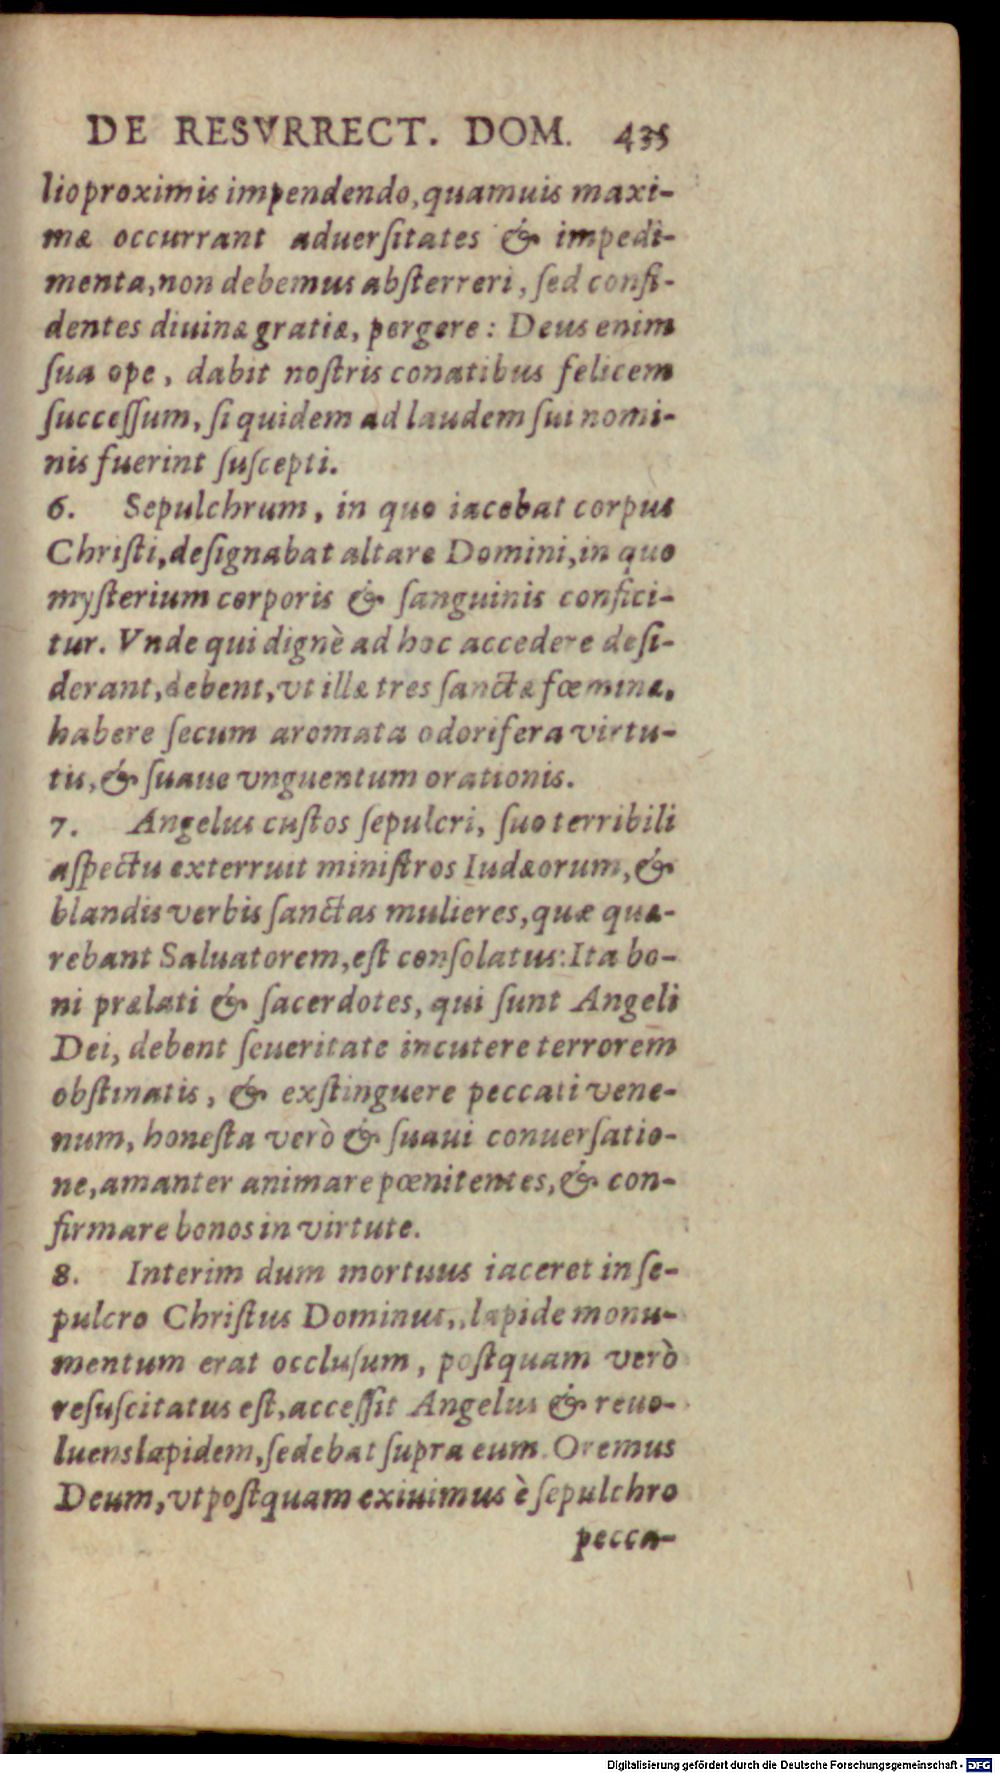 DE RESVRRECT. DOM. 435
lio proximis impendendo, quamuis maxi-
mæ occurrant aduerſitates & impedi-
menta, non debemus abſterreri, ſed confi-
dentes diuinæ gratiæ, pergere: Deus enim
ſua ope, dabit noſtris conatibus felicem
ſucceſſum, ſi quidem ad laudem ſui nomi-
nis fuerint ſuſcepti.
6. Sepulchrum, in quo iacebat corpus
Chriſti, deſignabat altare Domini, in quo
myſterium corporis & ſanguinis confici-
tur. Vnde qui dignè ad hoc accedere deſi-
derant, debent, vt illæ tres ſanctæ fœminæ,
habere ſecum aromata odorifera virtu-
tis, & ſuaue vnguentum orationis.
7. Angelus cuſtos ſepulcri, ſuo terribili
aſpectu exterruit miniſtros Iudæorum, &
blandis verbis ſanctas mulieres, quæ quæ-
rebant Saluatorem, eſt conſolatus: Ita bo-
ni prælati & ſacerdotes, qui ſunt Angeli
Dei, debent ſeueritate incutere terrorem
obſtinatis, & exſtinguere peccati vene-
num, honeſta verò & ſuaui conuerſatio-
ne, amanter animare pœnitentes, & con-
firmare bonos in virtute.
8. Interim dum mortuus iaceret in ſe-
pulcro Chriſtus Dominus, lapide monu-
mentum erat occluſum, poſtquam verò
reſuſcitatus eſt, acceſſit Angelus & reuo-
luens lapidem, ſedebat ſupra eum. Oremus
Deum, vt poſtquam exiuimus è ſepulchro
pecca-
Digitalisierung gefördert durch die Deutsche Forschungsgemeinschaft - DFG